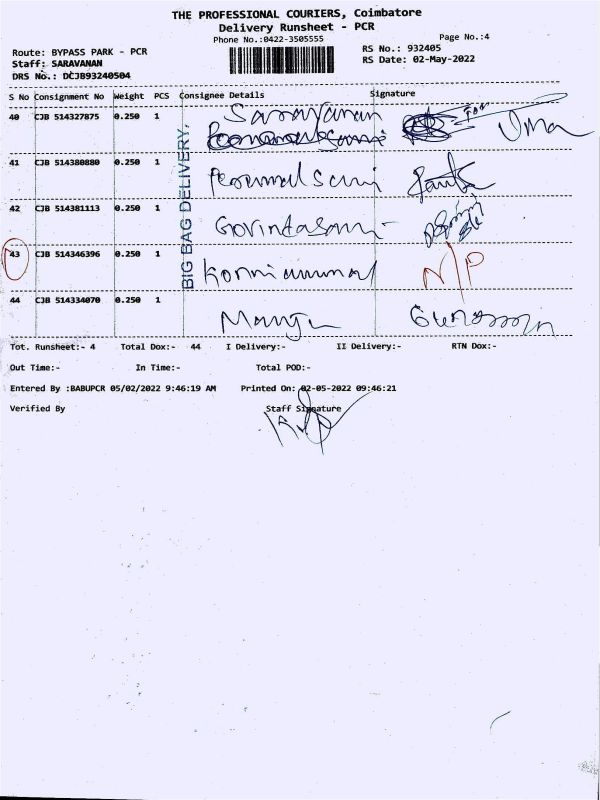 THE PROFESSIONAL COURIERS, Coimbatore
Delivery Runsheet - PCR
Phone No.:0422-3505555
Page No.:4
Route: BYPASS PARK - PCR
RS No.: 932405
Staff: SARAVANAN
RS Date: 02-May-2022
DRS No.: DCJB93240504
S No Consignment No Weight PCS Consignee Details Signature
40 CJB 514327875 0.250 1 Saravanan Uma
41 CJB 514380880 0.250 1 Perumalsami
42 CJB 514381113 0.250 1 Govindasami
43 CJB 514346396 0.250 1 N/P
44 CJB 514334070 0.250 1 Manju
BIG BAG DELIVERY,
Tot. Runsheet:- 4 Total Dox:- 44 I Delivery:- II Delivery:- RTN Dox:-
Out Time:- In Time:- Total POD:-
Entered By :BABUPCR 05/02/2022 9:46:19 AM Printed On: 02-05-2022 09:46:21
Verified By Staff Signature